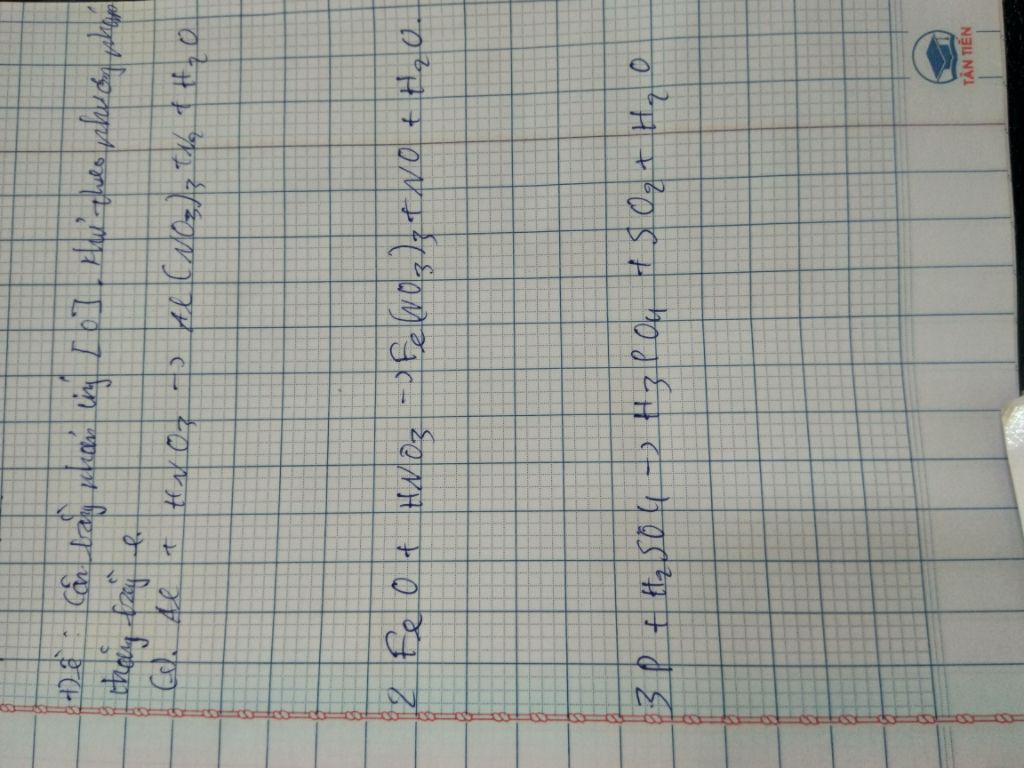 +) Đề: Cân bằng phản ứng [O]. Khử theo phương pháp
thăng bằng e
(1). Al + HNO3 -> Al(NO3)3 + N2 + H2O
2 FeO + HNO3 -> Fe(NO3)3 + NO + H2O.
3 P + H2SO4 -> H3PO4 + SO2 + H2O
TÂN TIẾN